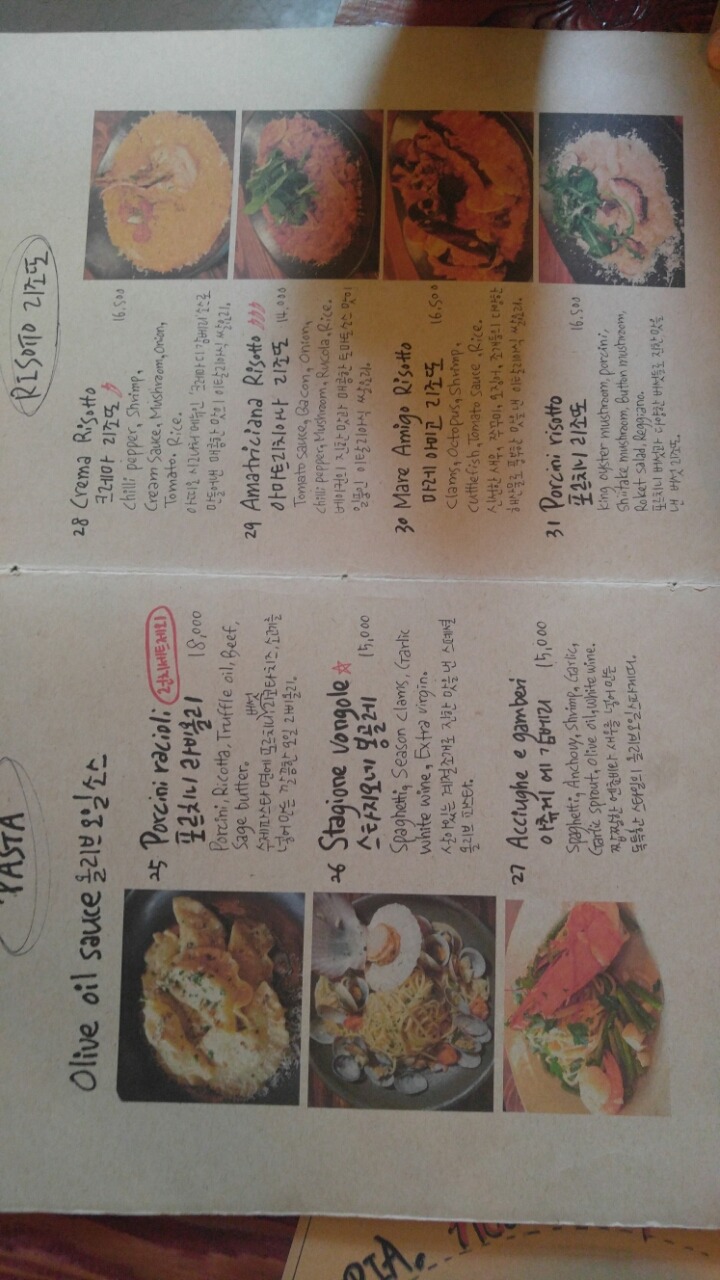 PASTA
Olive oil sauce 올리브오일 소스
25 Porcini racioli
포르치니 라비올리 18,000
Porcini, Ricotta, Truffle oil, Beef,
Sage butter.
26 Stagione Vongole ☆
스타지오네 봉골레 15,000
Spaghetti, Season Clams, Garlic
White wine, Extra Virgin.
살아있는 계절조개로 진한 맛을 낸 스페셜
올리브 파스타.
27 Acciughe e gamberi
아츄게 에 감베리 15,000
Spaghetti, Anchovy, Shrimp, Garlic,
Garlic sprout, Olive oil, White wine.
짭짤한 엔초비와 새우를 넣어 만든
독특한 스타일의 올리브오일스파게티.
RISOTTO 리조또
28 Crema Risotto
크레마 리조또 16,500
Chilli pepper, Shrimp,
Cream Sauce, Mushroom, Onion,
Tomato, Rice.
만들어낸 매콤한 맛의 이탈리아식 쌀요리.
29 Amatriciana Risotto
아마트리치아나 리조또 14,000
Tomato sauce, Bacon, Onion,
Chilli pepper, Mushroom, Rucola, Rice.
베이컨의 진한 맛과 매콤한 토마토소스 맛이
일품인 이탈리아식 쌀요리.
30 Mare Amigo Risotto
마레 아미고 리조또 16,500
Clams, Octopus, Shrimp,
Cuttlefish, Tomato Sauce, Rice.
신선한 새우, 쭈꾸미, 오징어, 조개등의 다양한
해산물로 풍부한 맛을 낸 이탈리아식 쌀요리.
31 Porcini risotto
포르치니 리조또 16,500
King oyster mushroom, porcini,
Shiitake mushroom, Button mushroom,
Roket salad, Reggiano.
포르치니 버섯과 다양한 버섯으로 진한 맛을
낸 버섯 리조또.